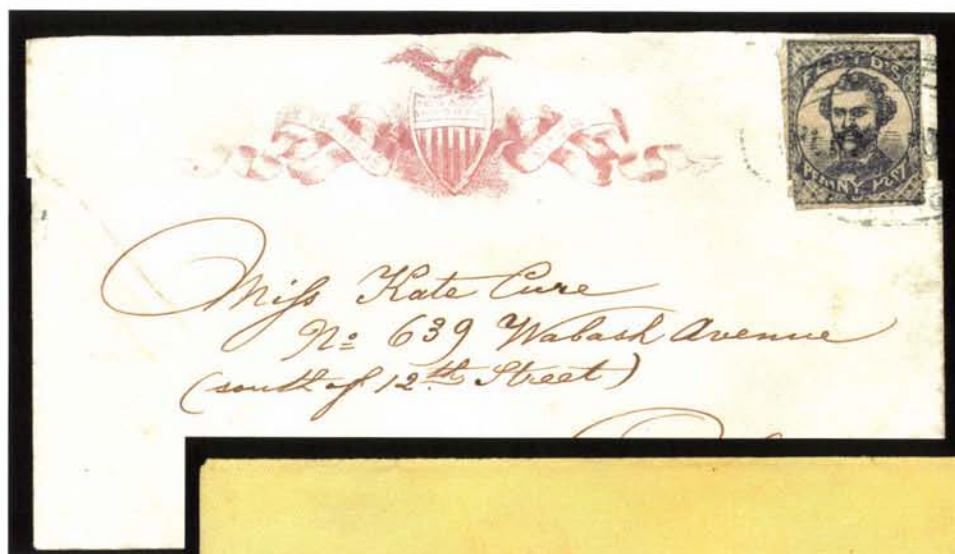 FLOYD'S
PENNY POST
Miss Kate Cure
No 639 Wabash Avenue
(south of 12th Street)